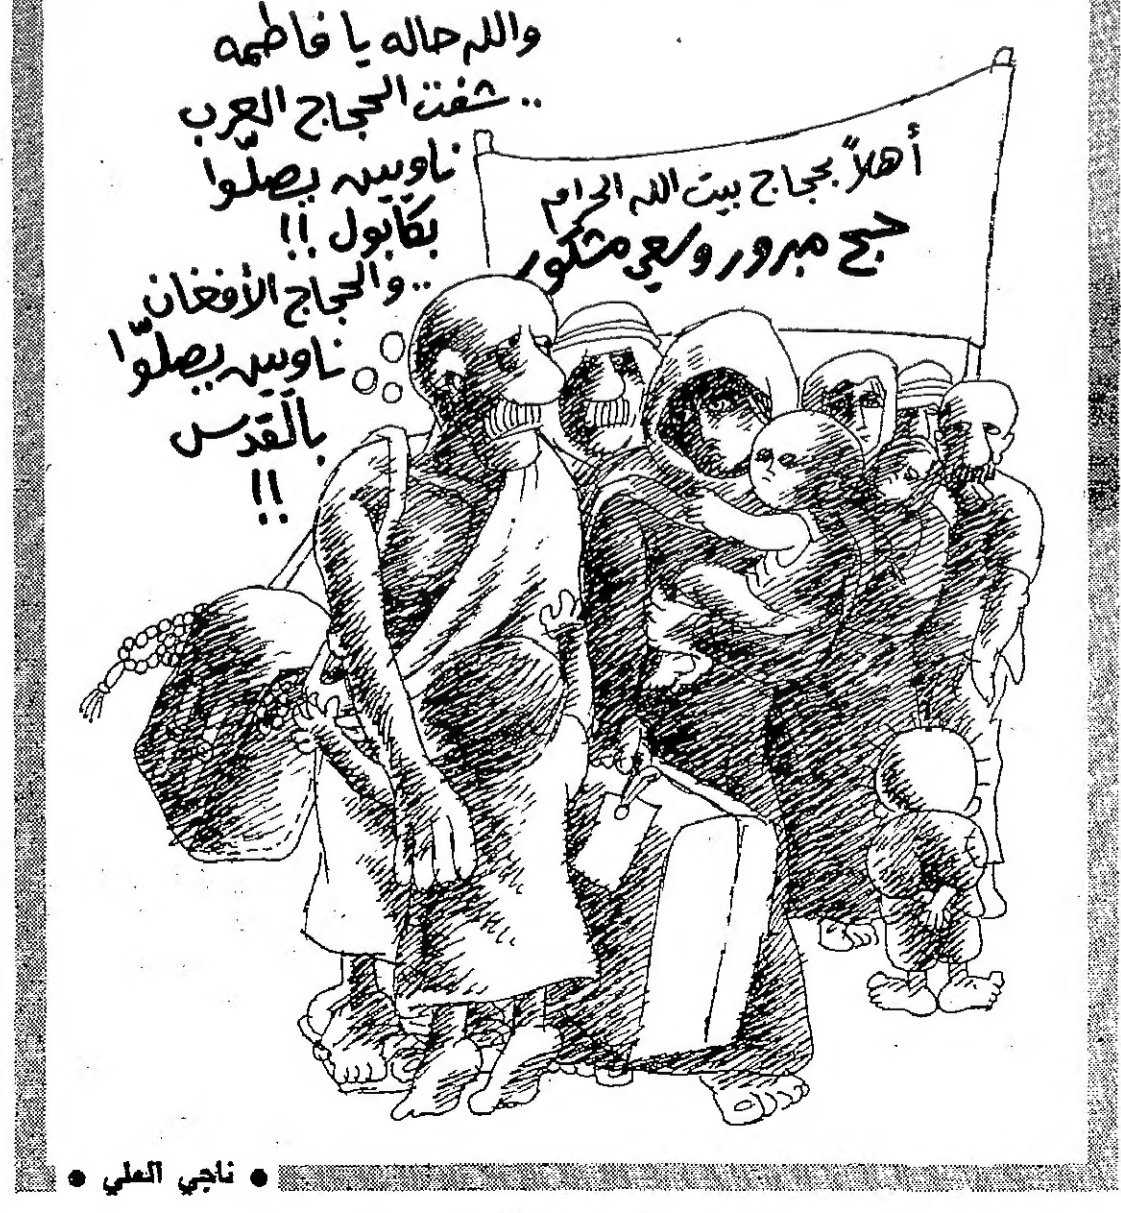 والله حاله يا فاطمه
.. شفت الحجاج العرب
ناويين يصلّوا
بكابول !!
.. والحجاج الأفغان
ناويين يصلّوا
بالقدس
!!
أهلاً بحجاج بيت الله الحرام
حج مبرور وسعي مشكور
• ناجي العلي •